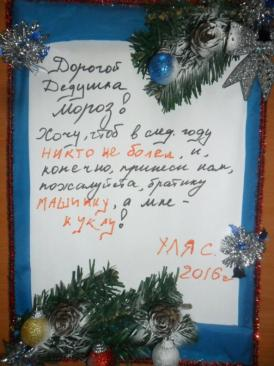 Дорогой
Дедушка
Мороз!
Хочу, чтоб в след. году
никто не болел, и,
конечно, принеси нам,
пожалуйста, братику
машинку, а мне –
куклу!
Уля С.
2016г